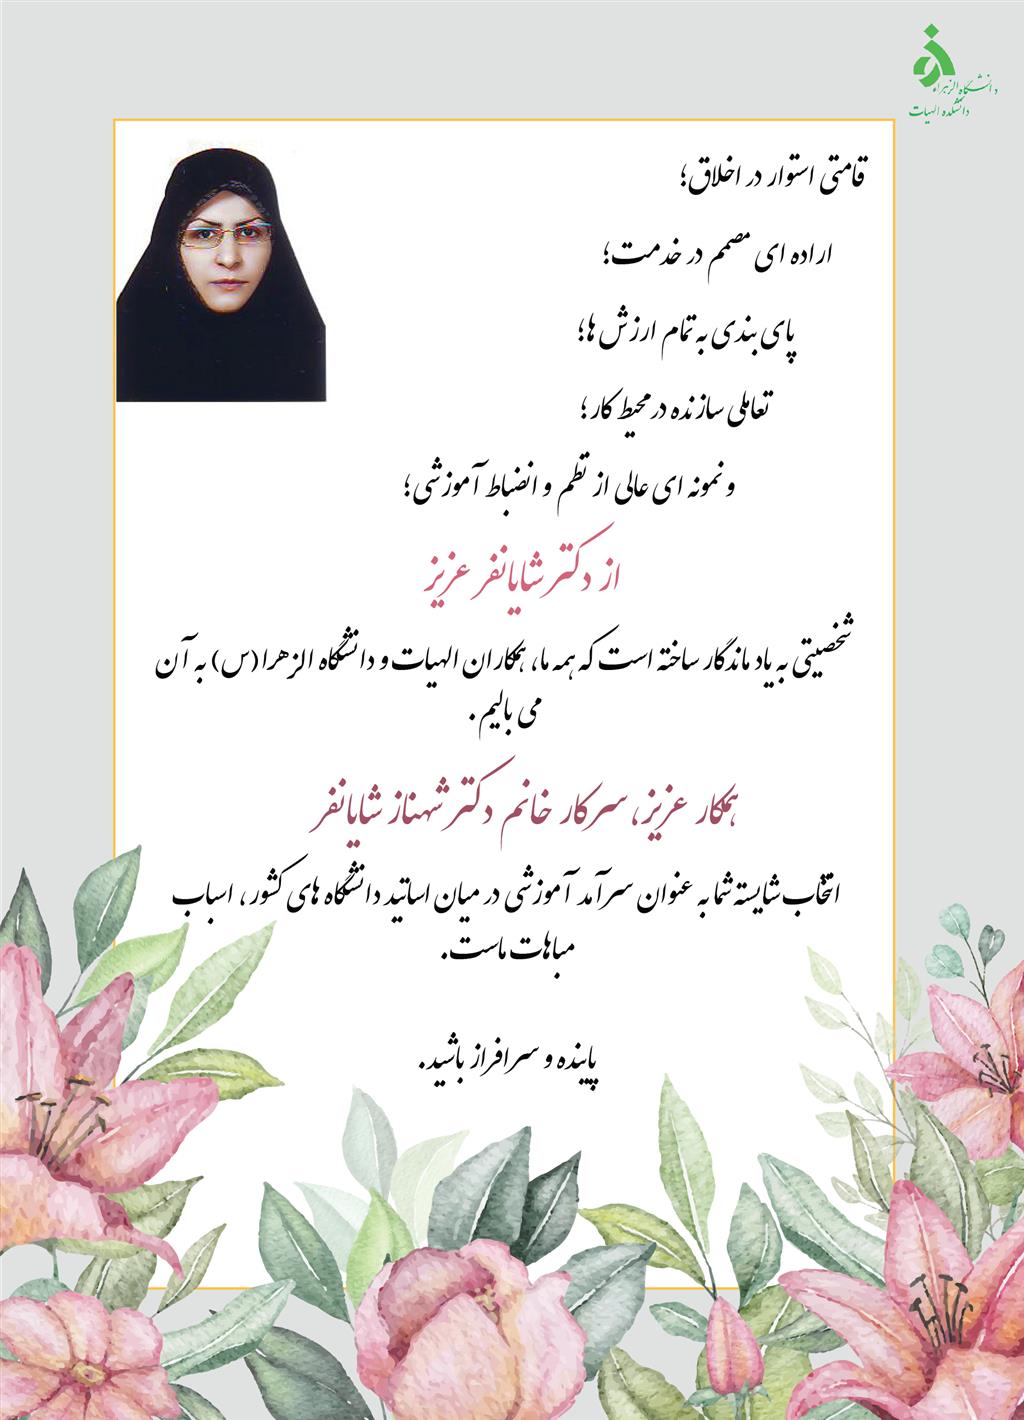 دانشگاه الزهراء
دانشکده الهیات
قامتی استوار در اخلاق؛
اراده ای مصمم در خدمت؛
پای بندی به تمام ارزش ها؛
تعاملی سازنده در محیط کار؛
و نمونه ای عالی از نظم و انضباط آموزشی؛
از دکتر شایانفر عزیز
شخصیتی به یاد ماندگار ساخته است که همه ما، همکاران الهیات و دانشگاه الزهرا(س) به آن
می بالیم.
همکار عزیز، سرکار خانم دکتر شهناز شایانفر
انتخاب شایسته شما به عنوان سرآمد آموزشی در میان اساتید دانشگاه های کشور، اسباب
مباهات ماست.
پاینده و سرافراز باشید.